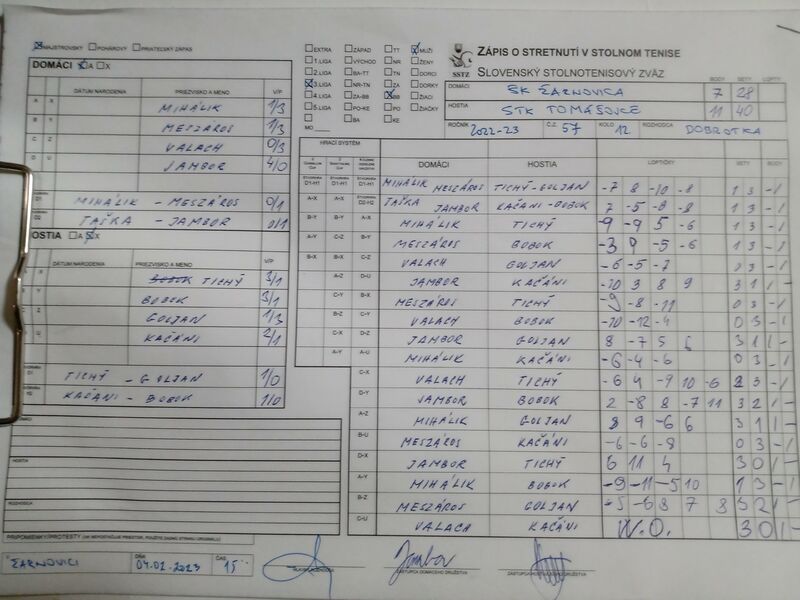 MAJSTROVSKÝ POHÁROVÝ PRIATEĽSKÝ ZÁPAS
DOMÁCI A X
DÁTUM NARODENIA PRIEZVISKO A MENO V/P
A X MIHÁLIK 1/3
B Y MESZÁROS 1/3
C Z VALACH 0/3
D U JAMBOR 4/0
D1 MIHÁLIK - MESZÁROS 0/1
D2 TAŠKA - JAMBOR 0/1
HOSTIA A X
DÁTUM NARODENIA PRIEZVISKO A MENO V/P
TICHÝ 3/1
BOBOK 3/1
GOLJAN 1/3
KAČÁNI 2/1
TICHÝ - GOLJAN 1/0
KAČÁNI - BOBOK 1/0
DOMÁCI
HOSTIA
ROZHODCA
PRIPOMIENKY/PROTESTY
ŽARNOVICI DŇA 04.02.2023 ČAS 15
EXTRA ZÁPAD TT MUŽI
1.LIGA VÝCHOD NR ŽENY
2.LIGA BA-TT TN DORCI
3.LIGA NR-TN ZA DORKY
4.LIGA ZA-BB BB ŽIACI
5.LIGA PO-KE PO ŽIAČKY
BA KE
MO
SSTZ
ZÁPIS O STRETNUTÍ V STOLNOM TENISE
SLOVENSKÝ STOLNOTENISOVÝ ZVÄZ
BODY SETY LOPTY
DOMÁCI SK ŽARNOVICA 7 28
HOSTIA STK TOMÁŠOVCE 11 40
ROČNÍK 2022-23 Č.Z. 57 KOLO 12 ROZHODCA DOBROTKA
HRACÍ SYSTÉM
DOMÁCI HOSTIA LOPTIČKY SETY BODY
D1-H1 D1-H1 D1-H1 MIHÁLIK MESZÁROS TICHÝ-GOLJAN -7 8 -10 -8 1 3 -/1
A-X A-X D2-H2 TAŠKA JAMBOR KAČÁNI-BOBOK 7 -5 -8 -8 1 3 -/1
B-Y B-Y A-X MIHÁLIK TICHÝ -9 -9 5 -6 1 3 -/1
A-Y C-Z B-Y MESZÁROS BOBOK -3 9 -5 -6 1 3 -/1
B-X B-X C-Z VALACH GOLJAN -6 -5 -7 0 3 -/1
A-Z D-U JAMBOR KAČÁNI -10 3 8 9 3 1 1/-
C-Y B-X MESZÁROS TICHÝ -9 -8 -11 0 3 -/1
B-Z C-Y VALACH BOBOK -10 -12 -4 0 3 -/1
C-X D-Z JAMBOR GOLJAN 8 -7 5 6 3 1 1/-
A-Y A-U MIHÁLIK KAČÁNI -6 -4 -6 0 3 -/1
C-X VALACH TICHÝ -6 4 -9 10 -6 2 3 -/1
D-Y JAMBOR BOBOK 2 -8 8 -7 11 3 2 1/-
A-Z MIHÁLIK GOLJAN 8 9 -6 6 3 1 1/-
B-U MESZÁROS KAČÁNI -6 -6 -8 0 3 -/1
D-X JAMBOR TICHÝ 6 11 4 3 0 1/-
A-Y MIHÁLIK BOBOK -9 -11 -5 10 1 3 -/1
B-Z MESZÁROS GOLJAN -5 -6 8 7 8 3 2 1/-
C-U VALACH KAČÁNI W.O. 3 0 1/-
Jambor